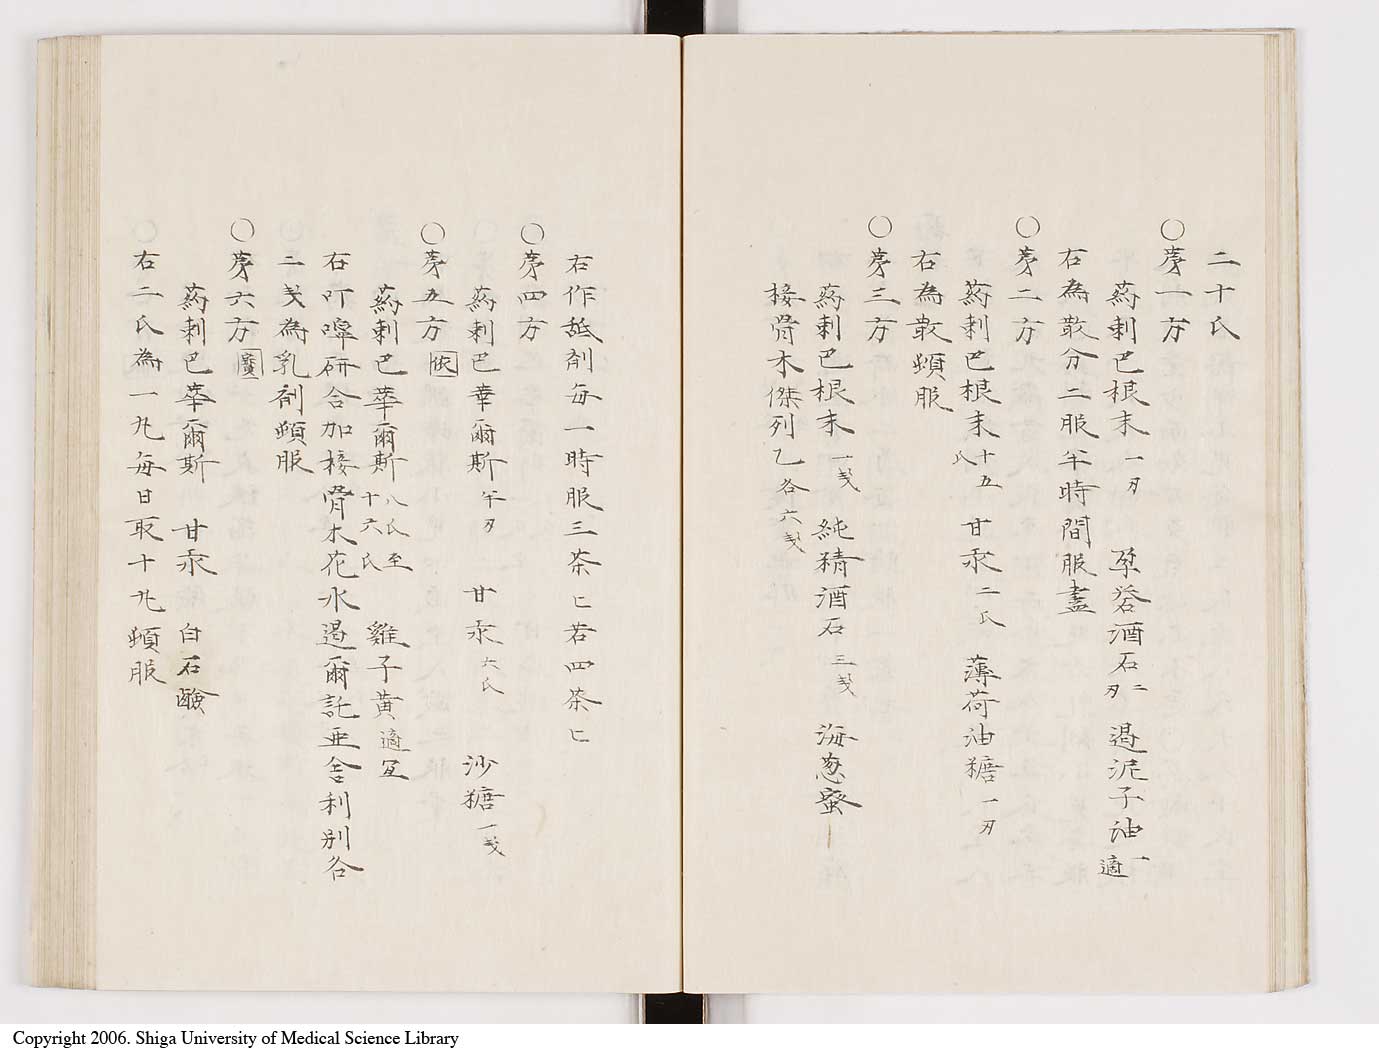 二十氏
〇第一方
葯剌巴根末一刄 孕礬酒石二刄 遏泥子油一滴
右為散分二服半時間服盡
〇第二方
葯剌巴根末十五氏 甘汞二氏 薄荷油糖一刄
右為散頓服
〇第三方
葯剌巴根末一戔 純精酒石三戔 海葱蜜
接骨木傑列乙各六戔
右作舐剤每一時服三茶匕若四茶匕
〇第四方
葯剌巴華爾斯半刄 甘汞六氏 沙糖一戔
〇第五方 依
葯剌巴華爾斯八氏至十六氏 雞子黄適宜
右叮嚀研合加接骨木花水遏爾託亜舎利別各
二戔為乳剤頓服
〇第六方
葯剌巴華爾斯 甘汞 白石鹸
〇右二氏為一丸每日取十丸頓服
Copyright 2006. Shiga University of Medical Science Library